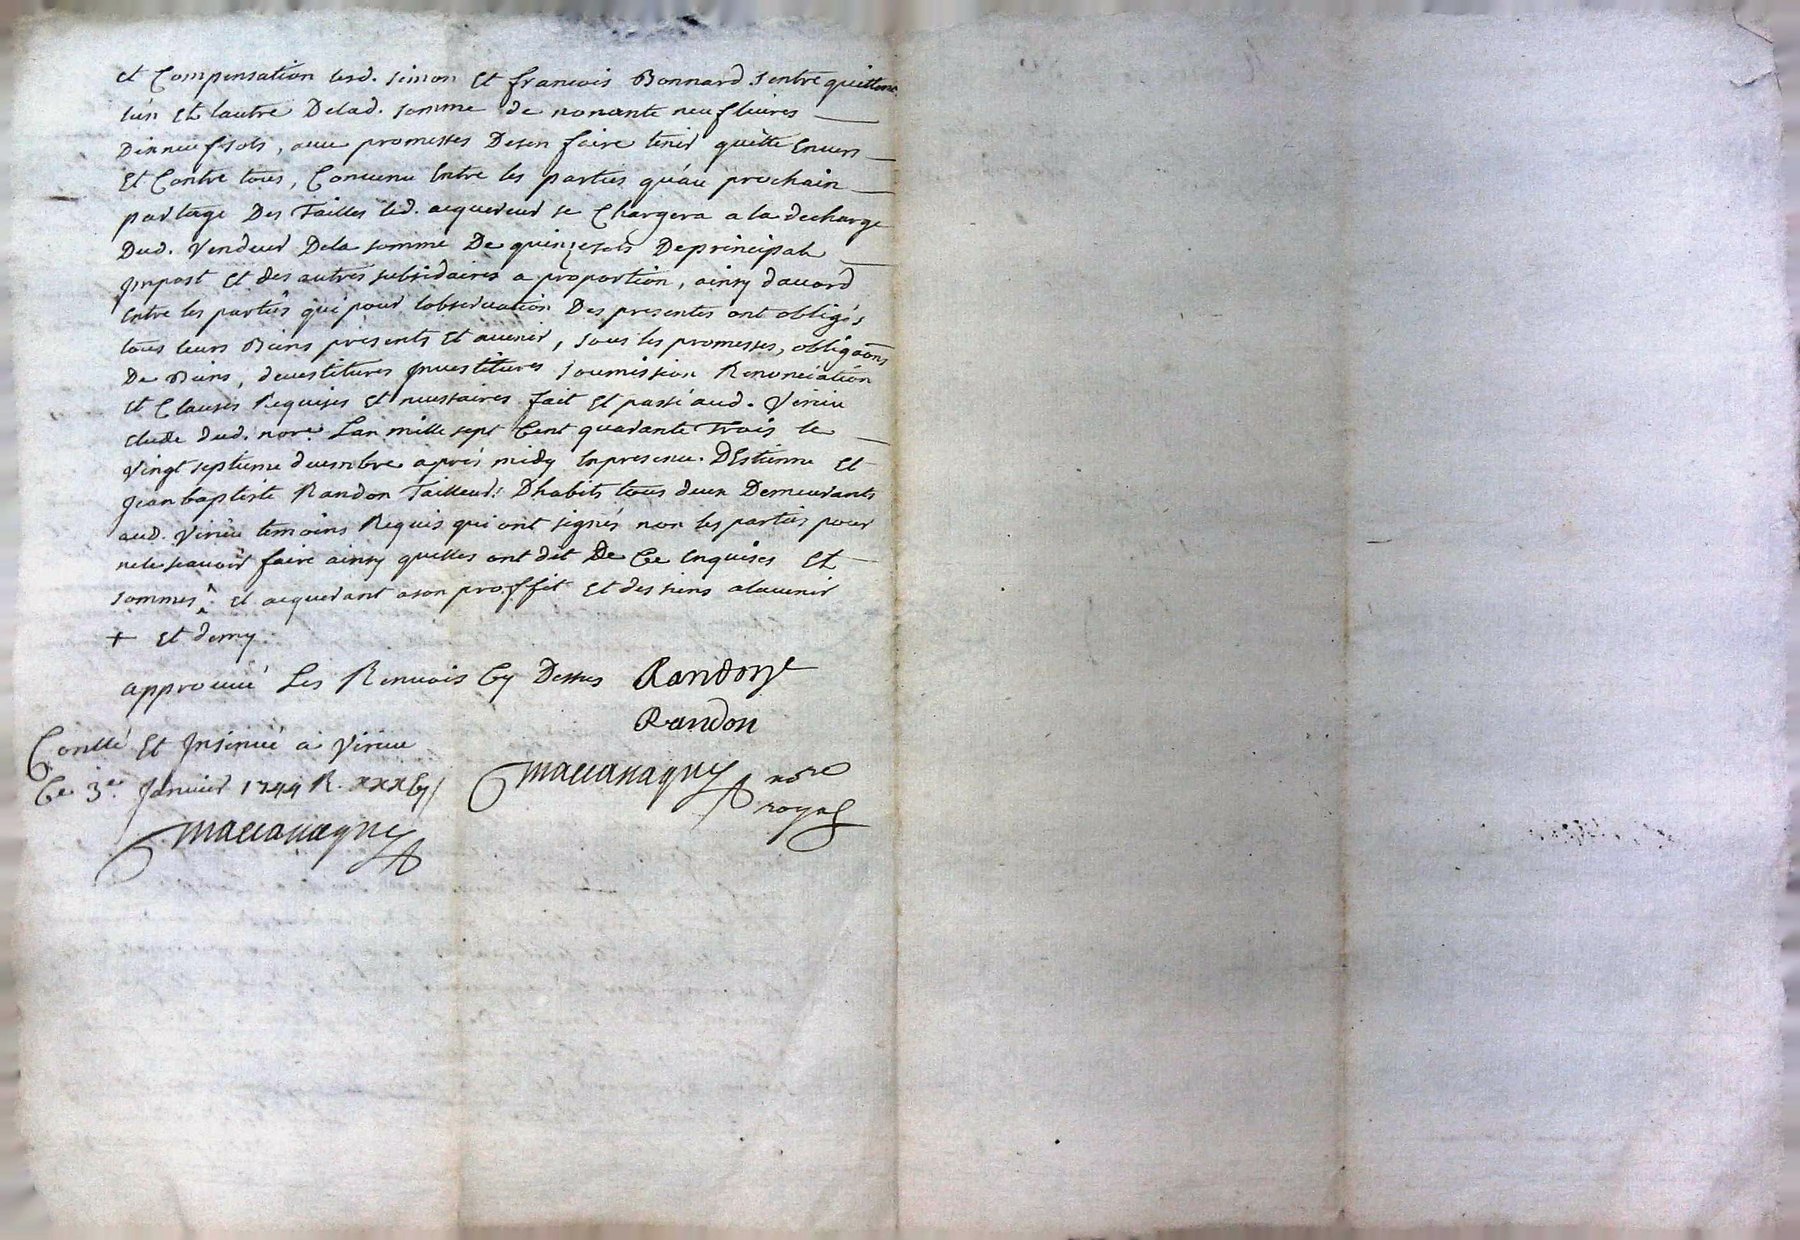 et Compensation lesd. simon et francois Bonnard s'entre quittent
lún et lautre Delad. somme de nonante neuf livres
Dixneuf sols, avec promesses Desen faire tenir quitte Envers
Et Contre tous, Convenu Entre les parties qu'au prochain
partage Des Tailles led. acquereur se Chargera a la decharge
Dud. Vendeur Dela somme De quinze sols De principal
Impost et des autres subsidaires a proportion, ainsy d'acord
Entre les parties qui pour lobservation Des presentes ont obligés
tous leurs Biens présents et avenir, sous les promesses, obligaõns
De Biens, devestitures Investitures soumission Renonciation
et Clauses Requises et necessaires fait et passé aud. Virieu
etude dud. nore. Lan mille sept Cent quarante Trois le
Vingt septieme decembre après midy En presence. D'Estienne et
Jean baptiste Randon Tailleurs Dhabits tous deux Demeurants
aud. Virieu temoins Requis qui ont signés non les parties pour
nele scavoir faire ainsy quelles ont dit De Ce Enquises Et
sommes. et acquerant a son proffit et des siens alavenir
+ et demy.
approuvé Les Renvois Cy Dessus Randon
Randon
Conllé Et Insinué a Virieu
Ce 3e. Janvier 1744 R. xxxGy
nore
royal